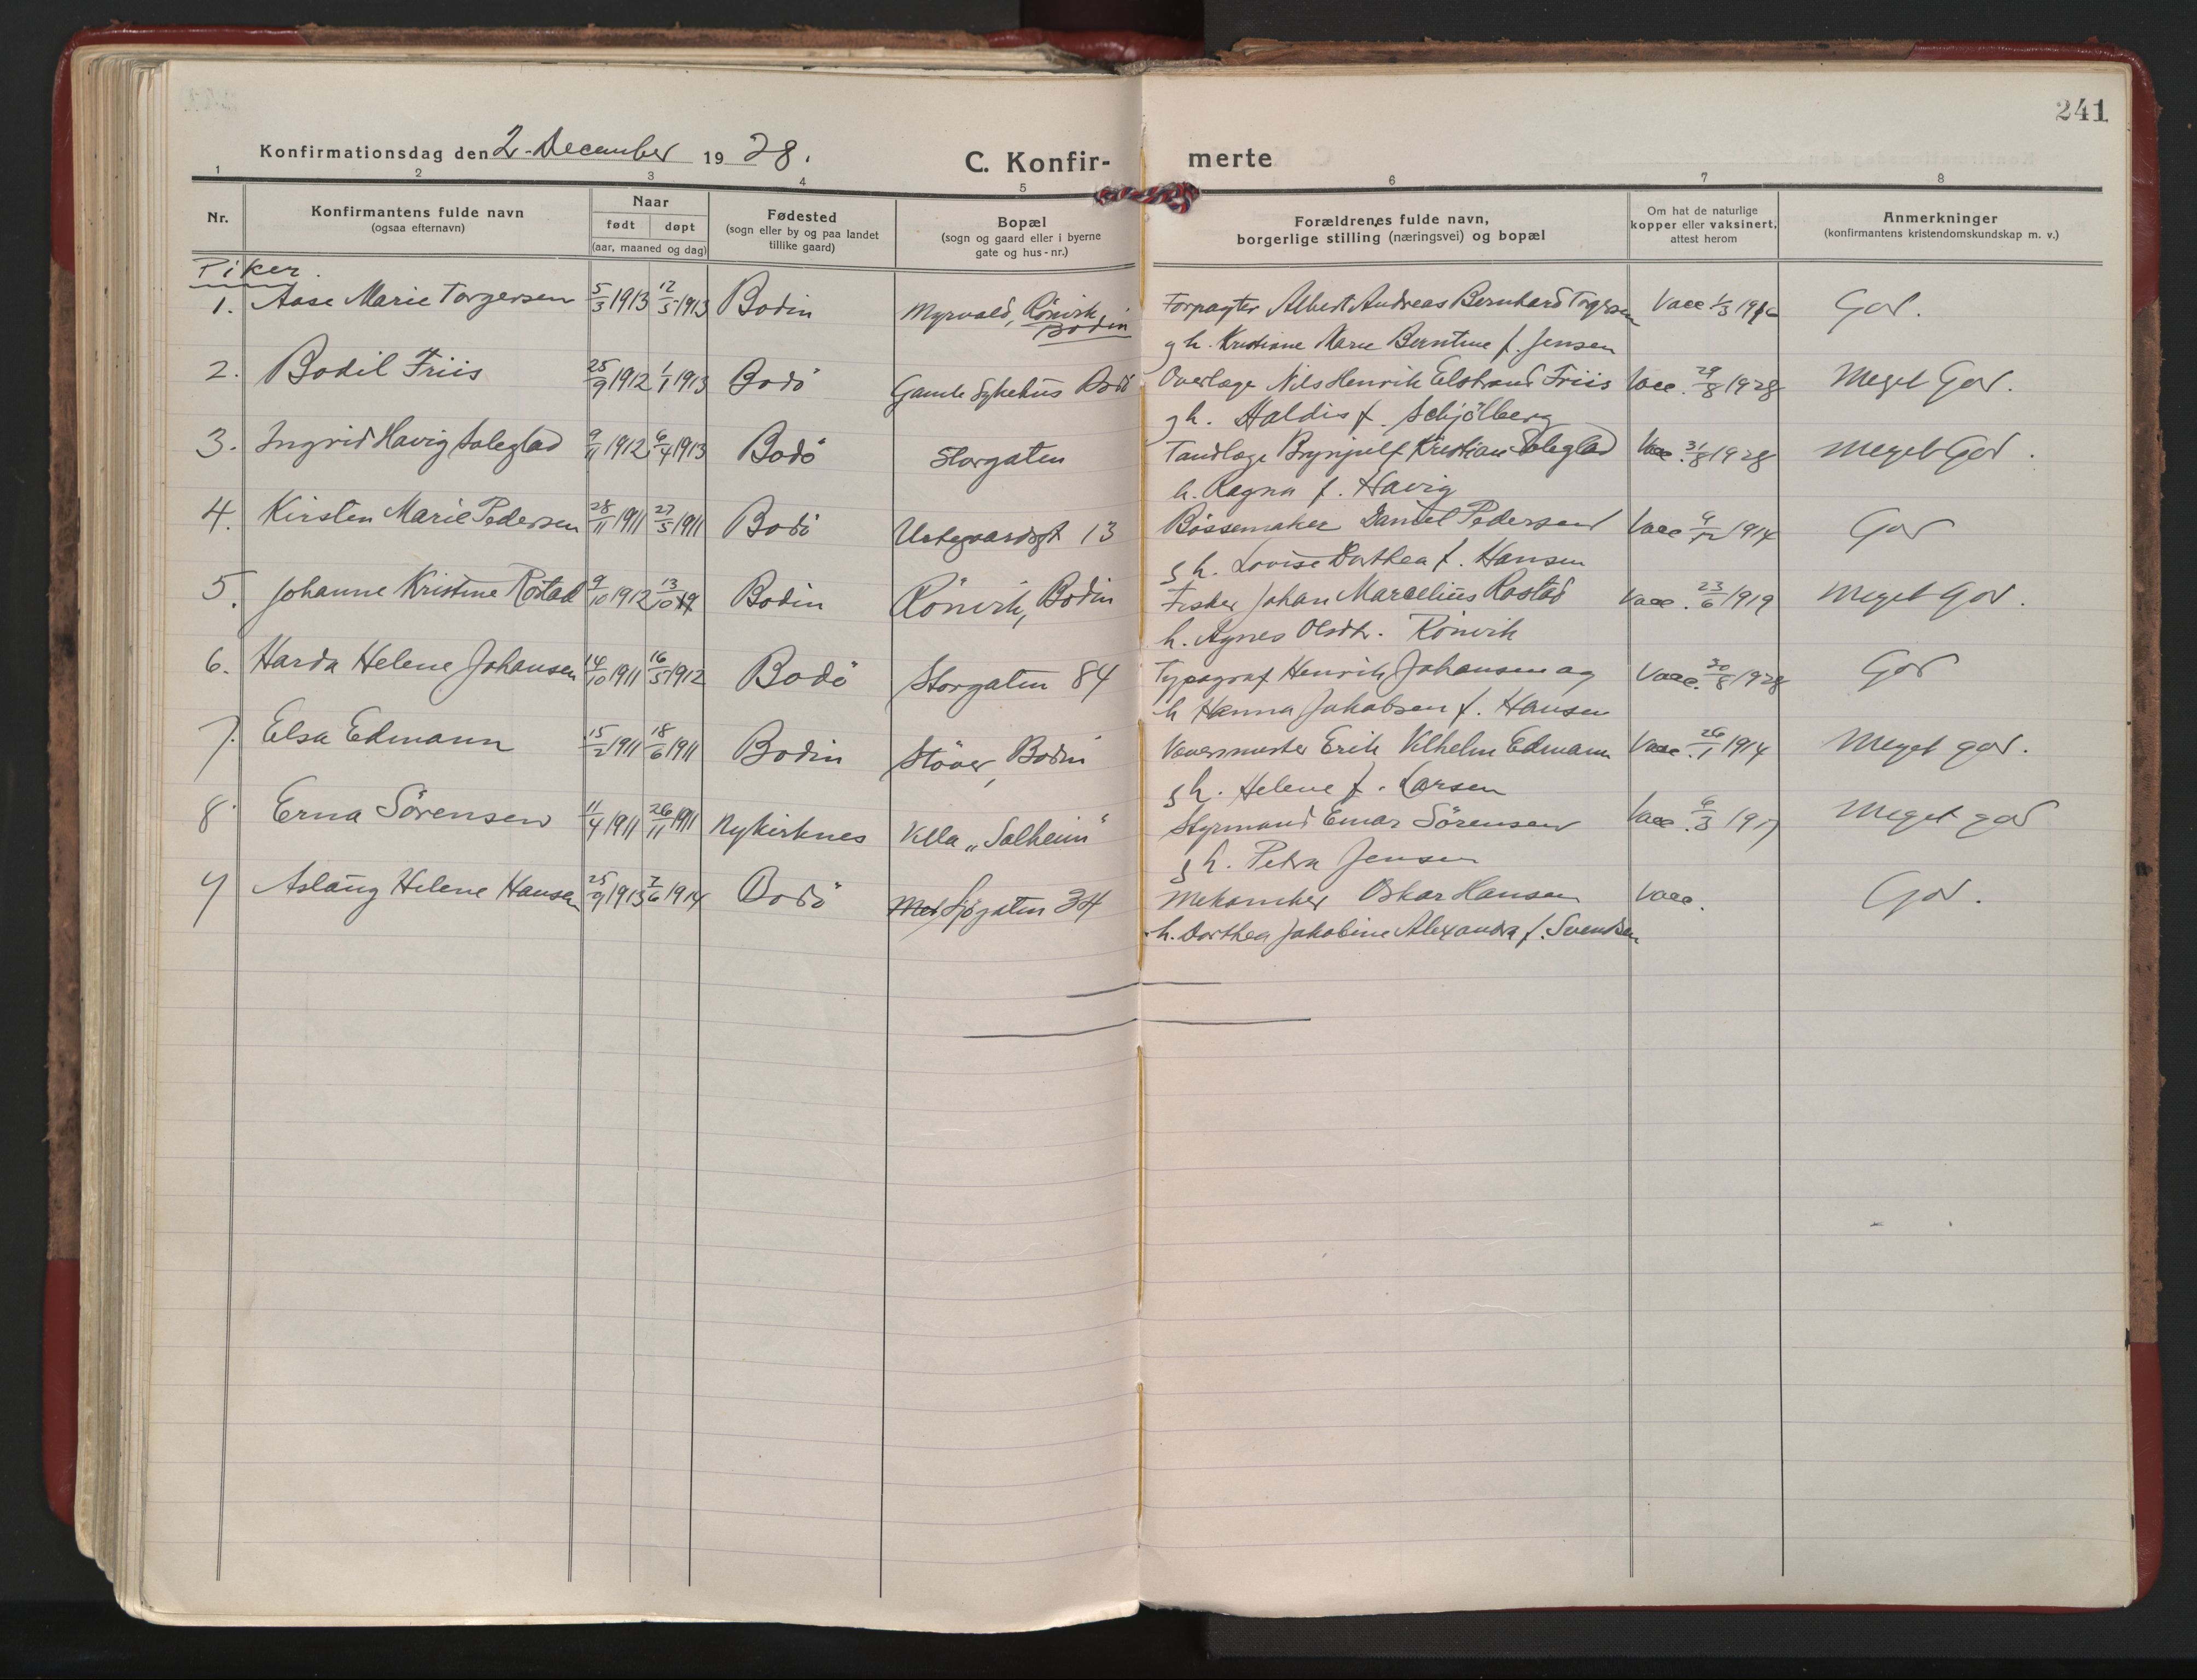 241
Konfirmationsdag den 2. December 1928.
C. Konfir- merte
1 2 3 4 5 6 7 8
Nr.
Konfirmantens fulde navn
(ogsaa efternavn)
Naar
født døpt
(aar, maaned og dag)
Fødested
(sogn eller by og paa landet
tillike gaard)
Bopæl
(sogn og gaard eller i byerne
gate og hus-nr.)
Forældrenes fulde navn,
borgerlige stilling (næringsvei) og bopæl
Om hat de naturlige
kopper eller vaksinert,
attest herom
Anmerkninger
(konfirmantens kristendomskundskap m. v.)
Piker.
1. Aase Marie Torgersen 5/3 1913 12/5 1913 Bodin Myrvold, Rönvik, Forpagter Albert Andreas Bernhard Vacc 1/3 1916 God.
Bodin
g h. Kristiane Marie Berntine f. Jensen
2. Bodil Friis 25/9 1912 1/1 1913 Bodö Gamle Sykehus Bodö Overlæge Nils Henrik Elstrand Friis Vacc. 29/8 1928 Meget God.
g h. Haldis f. Schjölberg
3. Ingrid Havig Soleglad 9/11 1912 6/4 1913 Bodö Storgaten Tandlæge Brynjulf Kristian Soleglad Vacc. 31/8 1928 Meget God.
h. Ragna f. Havig
4. Kirsten Marie Pedersen 28/11 1911 27/5 1911 Bodö 13 Bössemaker Daniel Pedersen Vacc 9/12 1914 God
g h. Lovise Dorthea f. Hansen
5. Johanne Kristine Röstad 9/10 1912 13/10 Bodin Rönvik, Bodin Fisker Johan Marcelius Rostad Vacc. 23/6 1919 Meget God.
h. Agnes Olsdtr. Rönvik
6. Harda Helene Johansen 14/10 1911 16/5 1912 Bodö Storgaten 84 Typograf Henrik Johansen og Vacc. 30/8 1928 God
h Hanna Jakobsen f. Hansen
7. Elsa Edmann 15/2 1911 18/6 1911 Bodin Stöver, Bodin Erik Vilhelm Edmann Vacc. 26/1 1914 Meget god.
g h. Helene f. Larsen
8. Erna Sörensen 11/4 1911 26/11 1911 Nykirknes Villa „Solheim" Styrmand Einar Sörensen Vacc. 6/3 1917 Meget god
g h. Petra Jensen
9 Aslaug Helene Hansen 25/9 1913 7/6 1914 Bodö Sjøgaten 34 Mekaniker Oskar Hansen Vacc. God.
h. Dorthea Jakobine Alexandra f. Svendsen